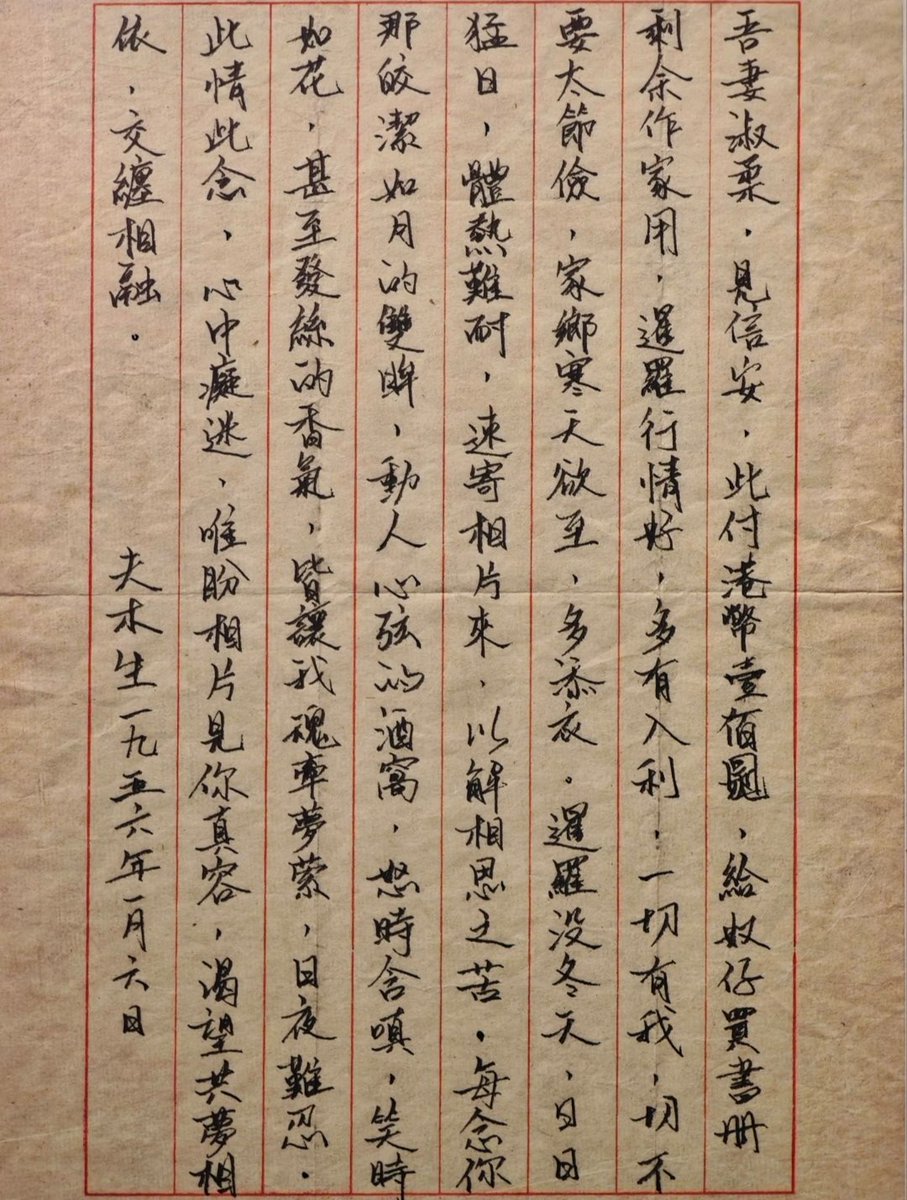 吾妻淑柔，見信安，此付港幣壹佰圓，給奴仔買書冊
剩余作家用，暹羅行情好，多有入利，一切有我，切不
要太節儉，家鄉寒天欲至，多添衣。暹羅没冬天，日日
猛日，體熱難耐，速寄相片來，以解相思之苦。每念你
那皎潔如月的雙眸，動人心弦的酒窩，怒時含嗔，笑時
如花，甚至發絲的香氣，皆讓我魂牽夢縈，日夜難忍。
此情此念，心中癡迷，唯盼相片見你真容，渴望共夢相
依，交纏相融。
夫木生一九五六年一月六日